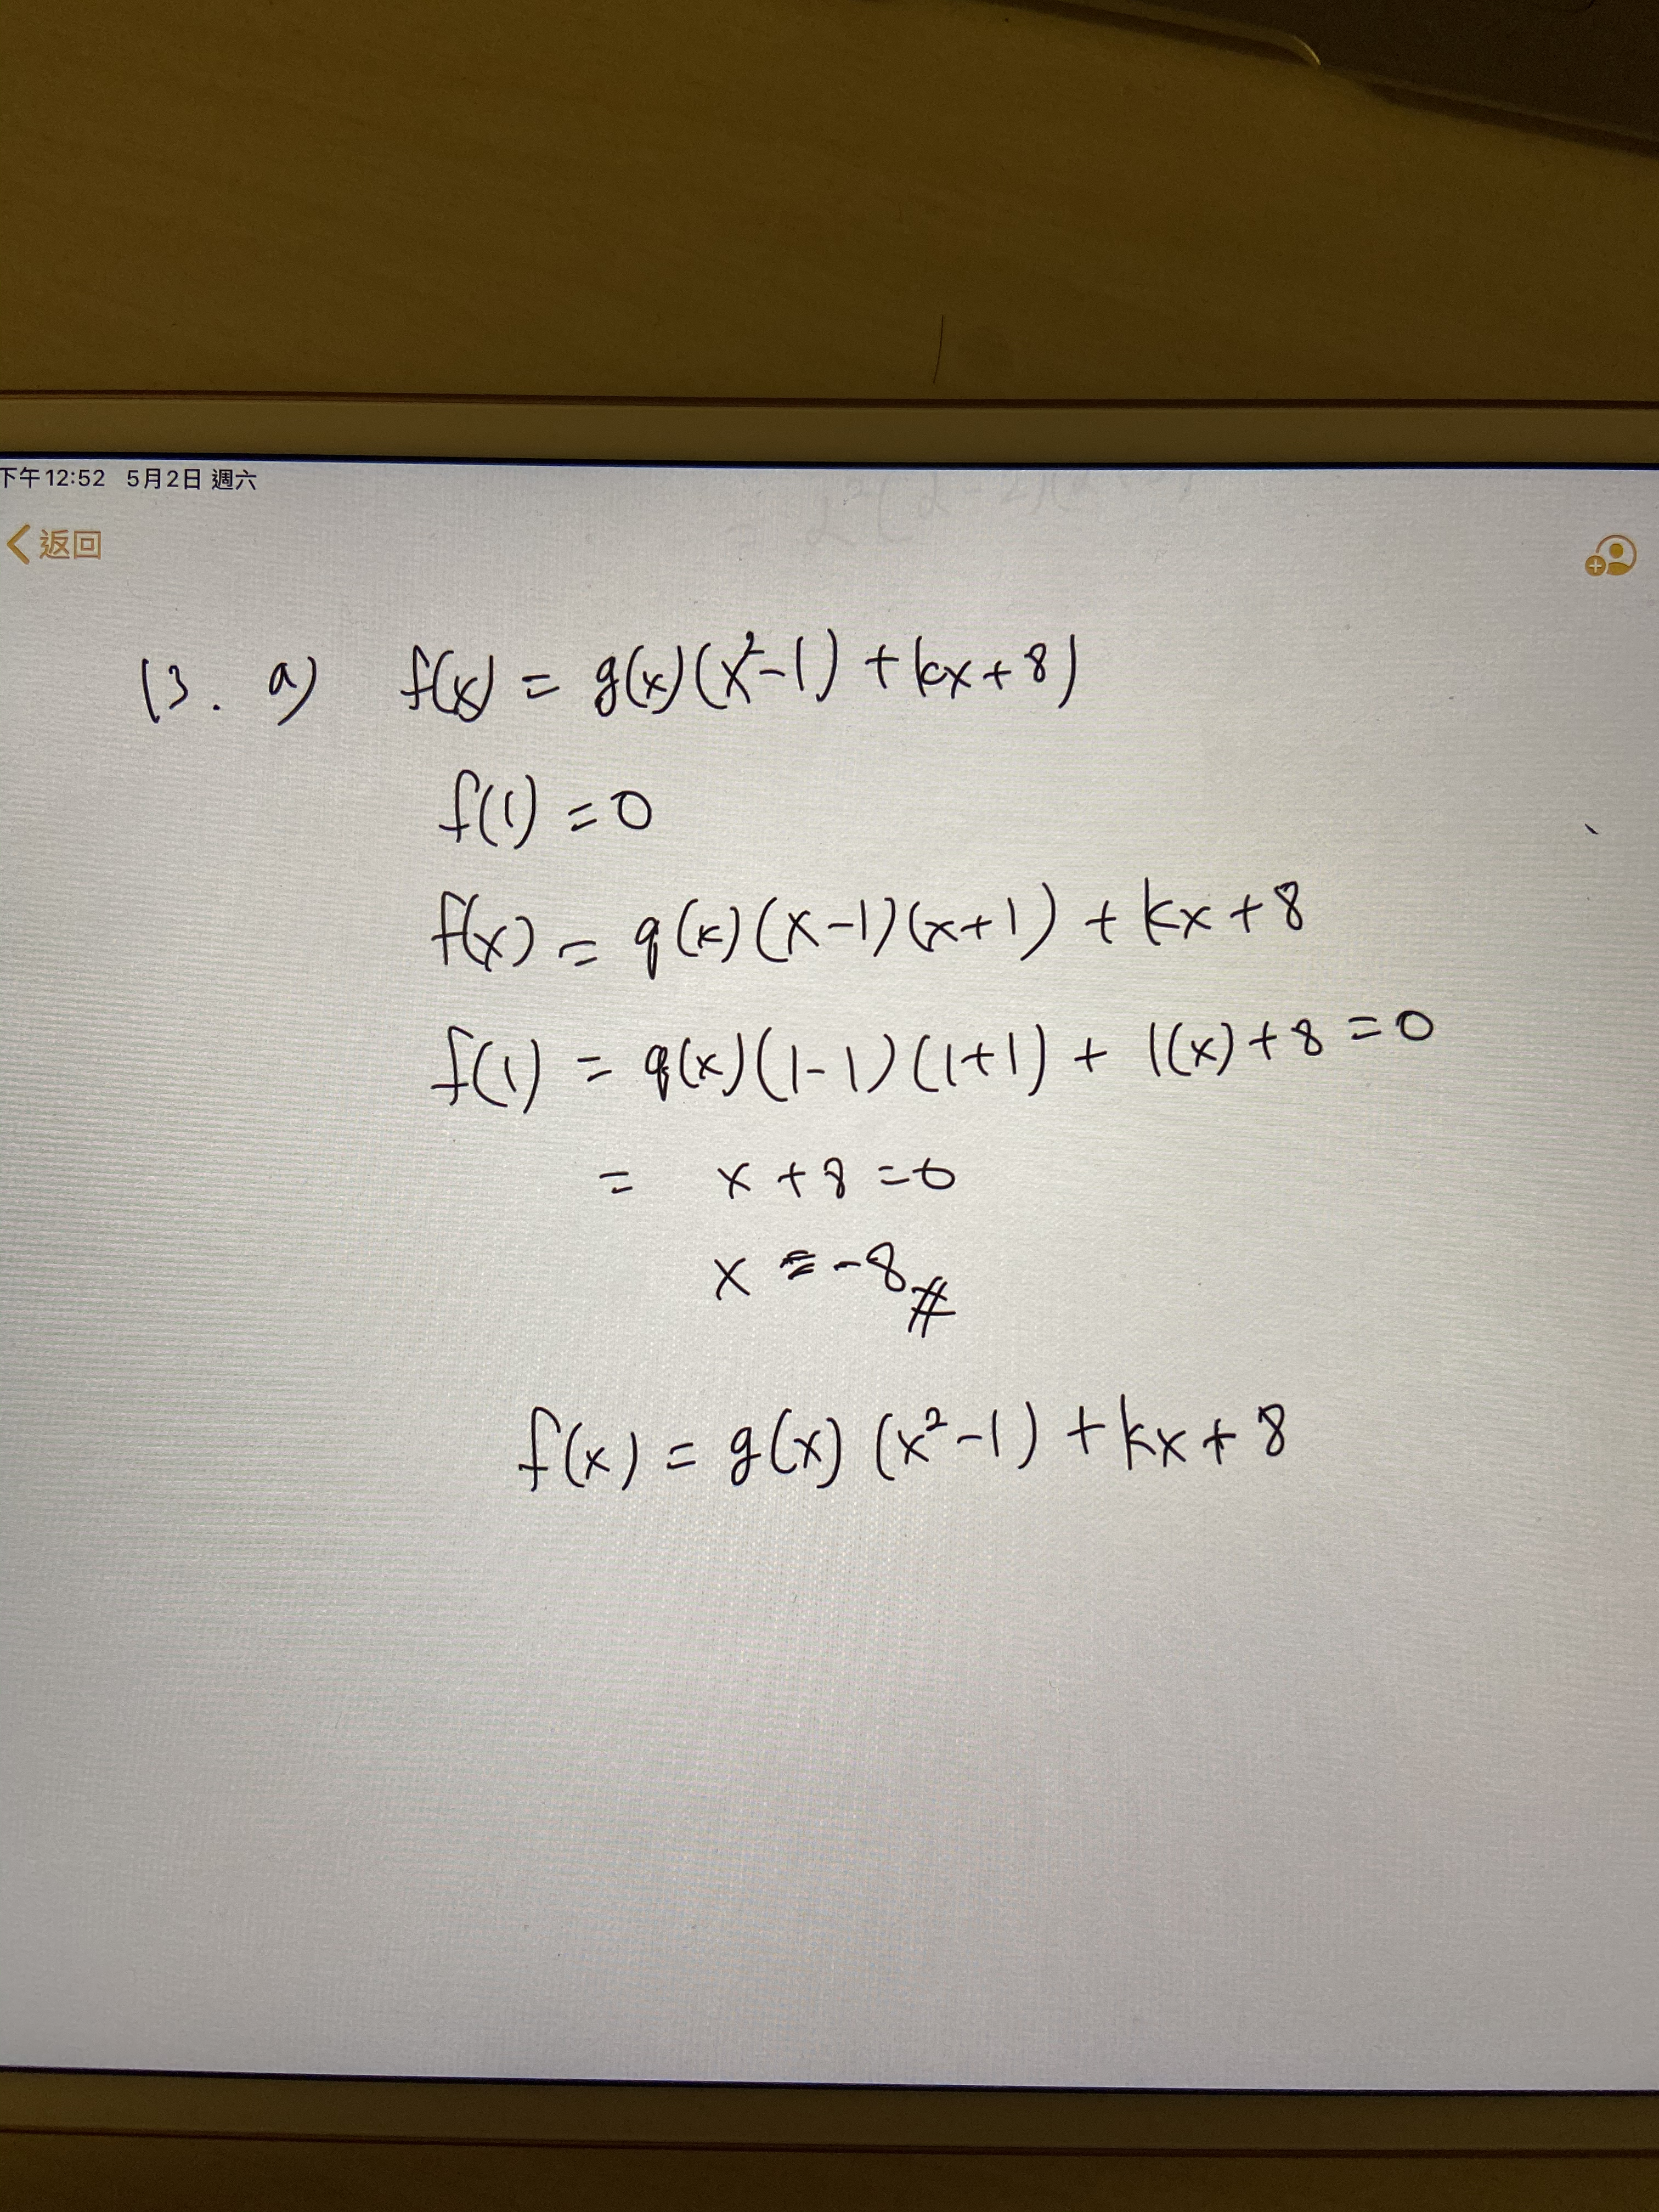 下午12:52 5月2日 週六
返回
13. a) f(x) = g(x)(x²-1) + kx + 8)
f(1) = 0
f(x) = q(x)(x-1)(x+1) + kx + 8
f(1) = q(x)(1-1)(1+1) + 1(x) + 8 = 0
= x + 8 = 0
x = -8 #
f(x) = g(x) (x²-1) + kx + 8